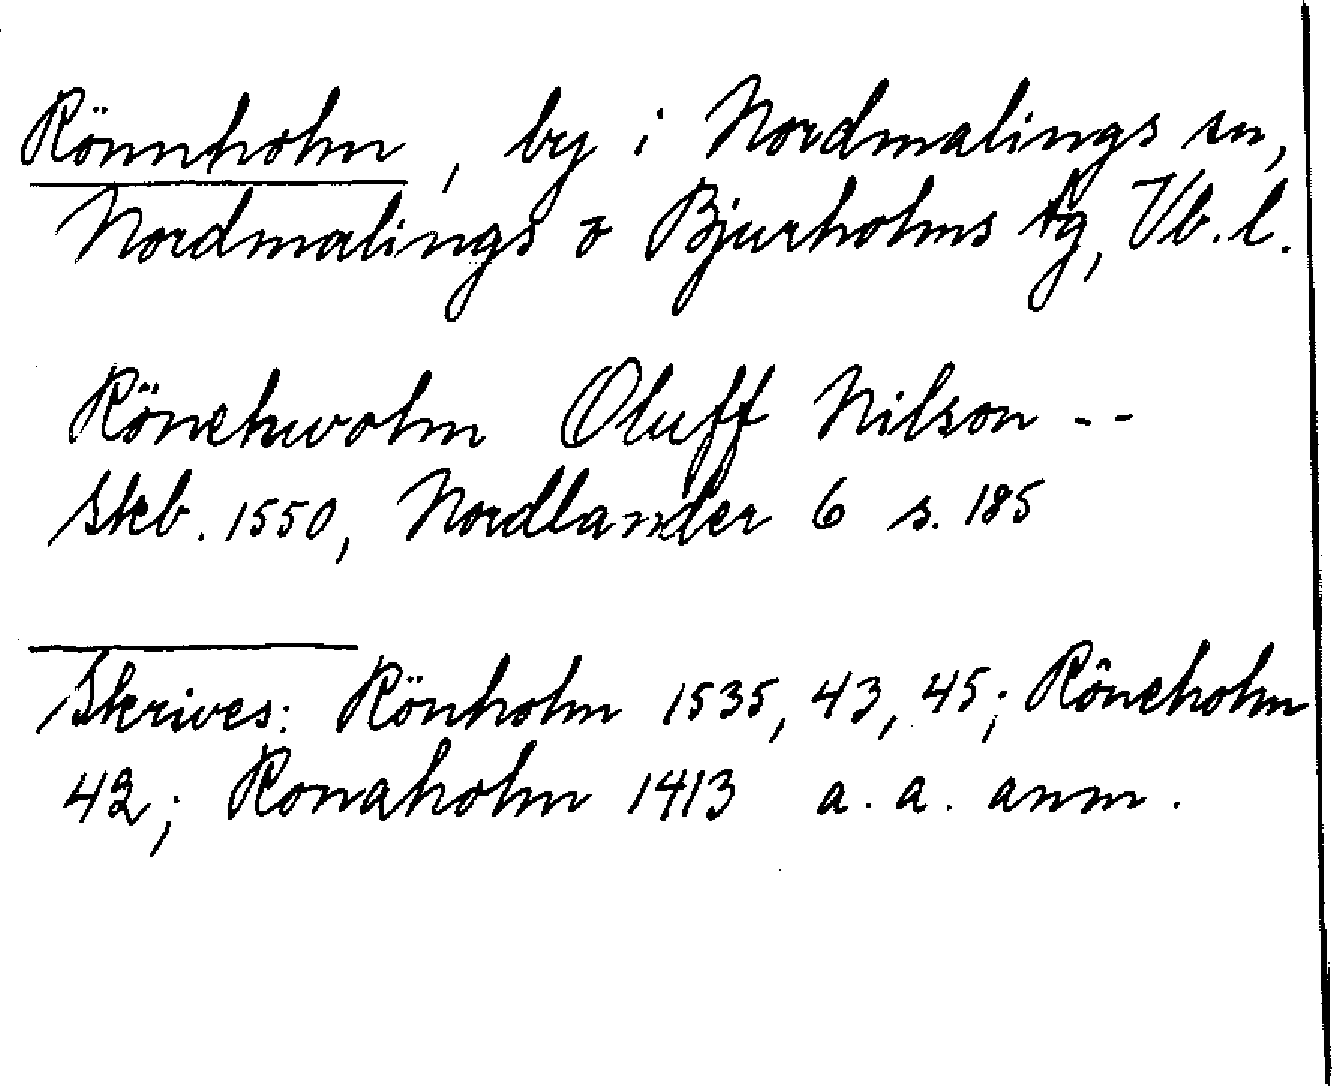 Rönnholm, by i Nordmalings sn,
Nordmalings o Bjurholms tg, Vb. l.
Rönehwolm Oluff Nilson --
Skb. 1550, Nordlander 6 s. 185
Skrives: Rönholm 1535, 43, 45; Röneholm
42; Ronaholm 1413 a. a. anm.